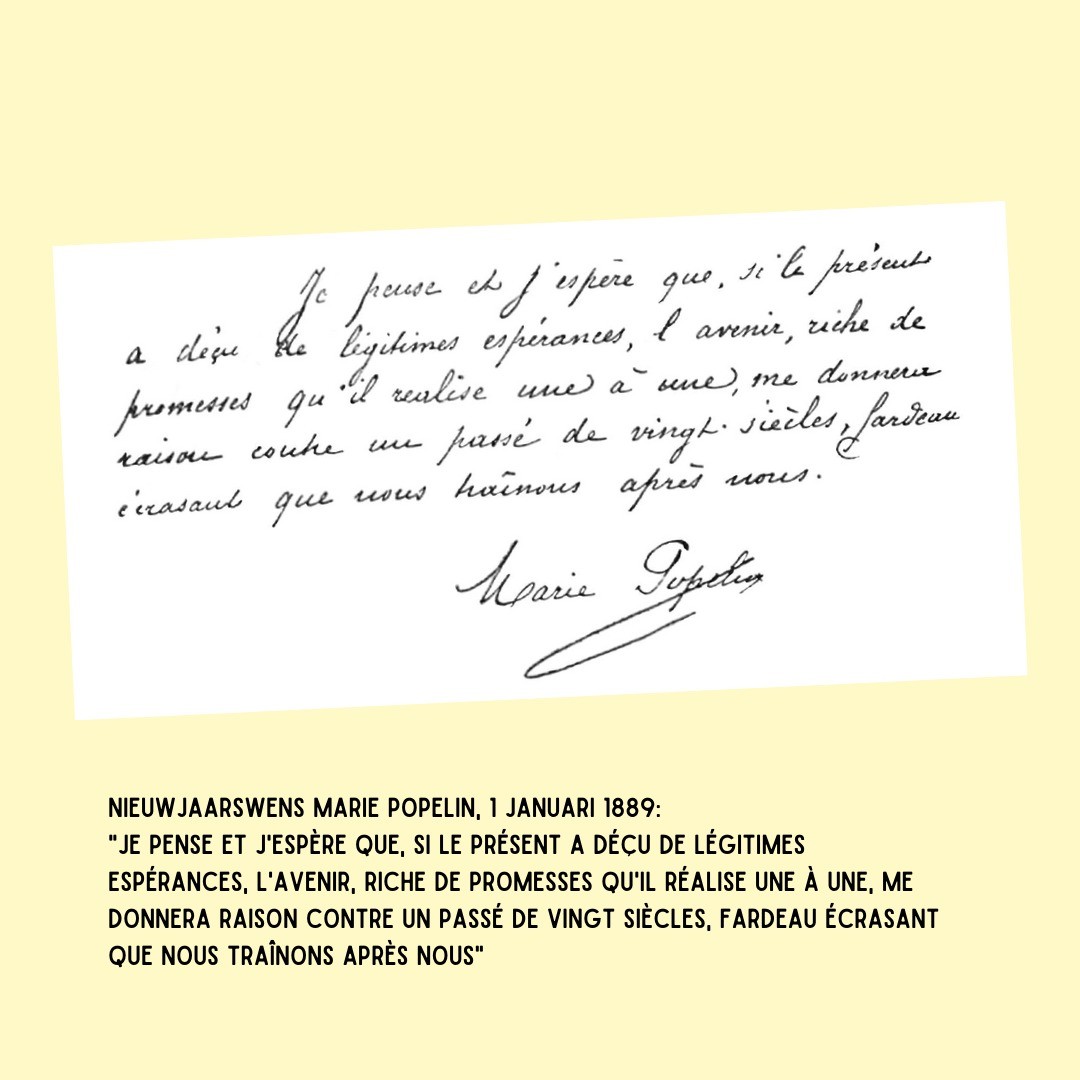 Je pense et j'espère que, si le présent
a déçu de légitimes espérances, l'avenir, riche de
promesses qu'il realise une à une, me donnera
raison contre un passé de vingt siècles, fardeau
écrasant que nous traînons après nous.
Marie Popelin
NIEUWJAARSWENS MARIE POPELIN, 1 JANUARI 1889:
"JE PENSE ET J'ESPÈRE QUE, SI LE PRÉSENT A DÉÇU DE LÉGITIMES
ESPÉRANCES, L'AVENIR, RICHE DE PROMESSES QU'IL RÉALISE UNE À UNE, ME
DONNERA RAISON CONTRE UN PASSÉ DE VINGT SIÈCLES, FARDEAU ÉCRASANT
QUE NOUS TRAÎNONS APRÈS NOUS"